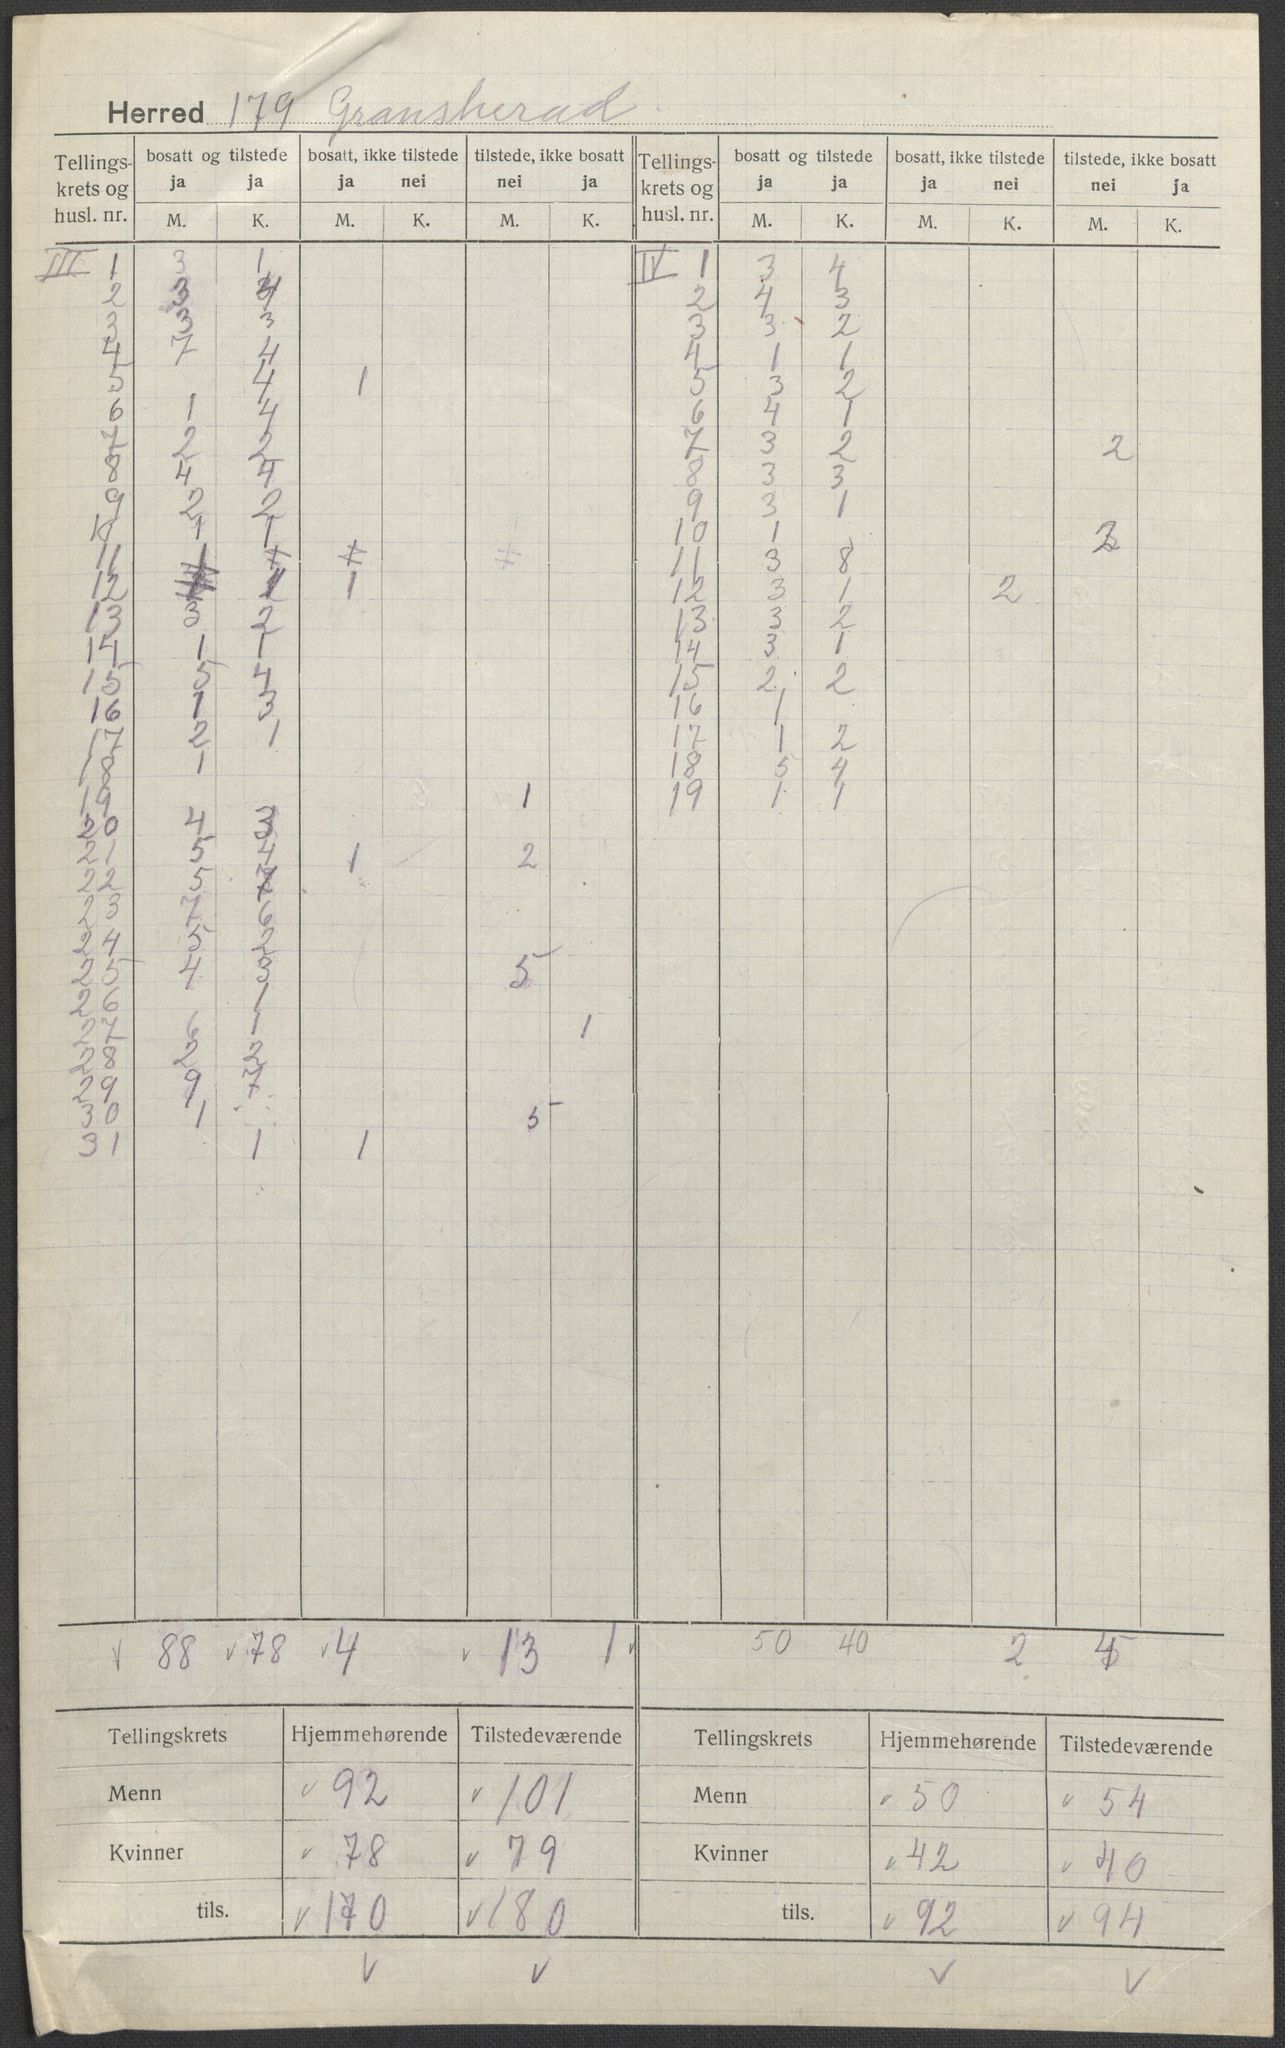 Herred 179 Gransherad
Tellings-krets og husl. nr. | bosatt og tilstede ja ja | bosatt, ikke tilstede ja nei | tilstede, ikke bosatt nei ja | Tellings-krets og husl. nr. | bosatt og tilstede ja ja | bosatt, ikke tilstede ja nei | tilstede, ikke bosatt nei ja
M. K. M. K. M. K. M. K. M. K. M. K.
III 1 3 1
2 3 4
3 3 3
4 7 4
5 4 1
6 1 4
7 2 2
8 4 4
9 2 2
10 1 1
11 1
12 1 1
13 3 2
14 1 1
15 5 4
16 1 3
17 2 1
18 1
19 1
20 4 3
21 5 4 1 2
22 5
23 7 6
24 5 2
25 4 3 5
26 1
27 6 1 1
28 2 2
29 9 7
30 1 5
31 1 1
IV 1 3 4
2 4 3
3 3 2
4 1 1
5 3 2
6 4 1
7 3 2 2
8 3 3
9 3 1
10 1
11 3 8
12 3 1 2
13 3 2
14 3 1
15 2 2
16 1
17 1 2
18 5 4
19 1 1
88 78 4 13 1 50 40 2
Tellingskrets Hjemmehørende Tilstedeværende Tellingskrets Hjemmehørende Tilstedeværende
Menn 92 101 Menn 50 54
Kvinner 78 79 Kvinner 42 40
tils. 170 180 tils. 92 94